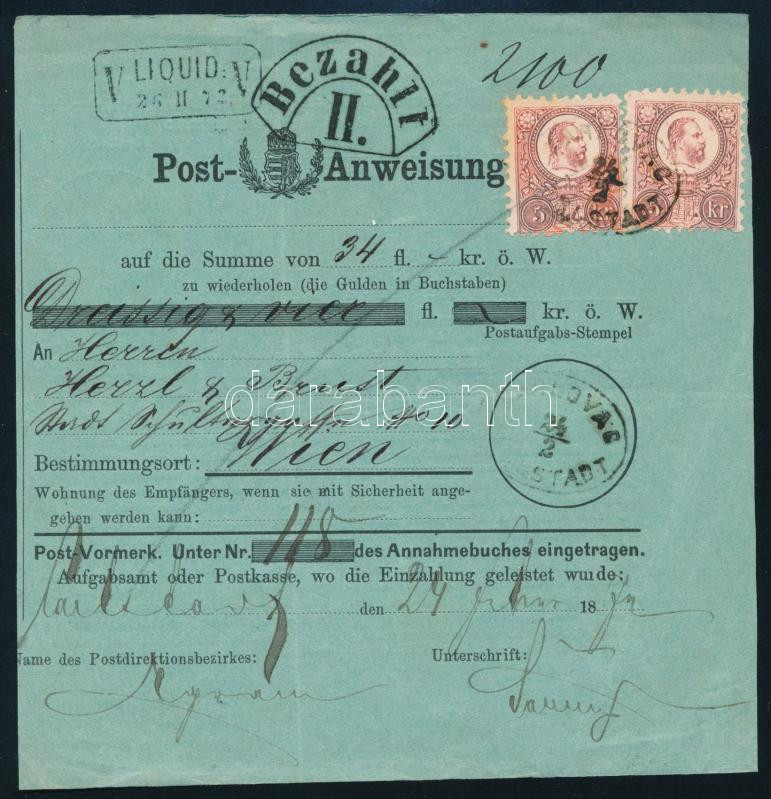 V LIQUID: V
26 II 72
Bezahlt
II.
2100
Post-Anweisung
5 kr
5 kr
24/2
STADT
auf die Summe von 34 fl. – kr. ö. W.
zu wiederholen (die Gulden in Buchstaben)
Dreissig & vier fl. kr. ö. W.
Postaufgabs-Stempel
An Herren
Herzl & Brust
Stadt No 10
OVAC
24/2
STADT
darabanth
Bestimmungsort: Wien
Wohnung des Empfängers, wenn sie mit Sicherheit ange-
geben werden kann:
Post-Vormerk. Unter Nr. 118 des Annahmebuches eingetragen.
Aufgabsamt oder Postkasse, wo die Einzahlung geleistet wurde:
den 24 18 72
Name des Postdirektionsbezirkes: Unterschrift:
Agram